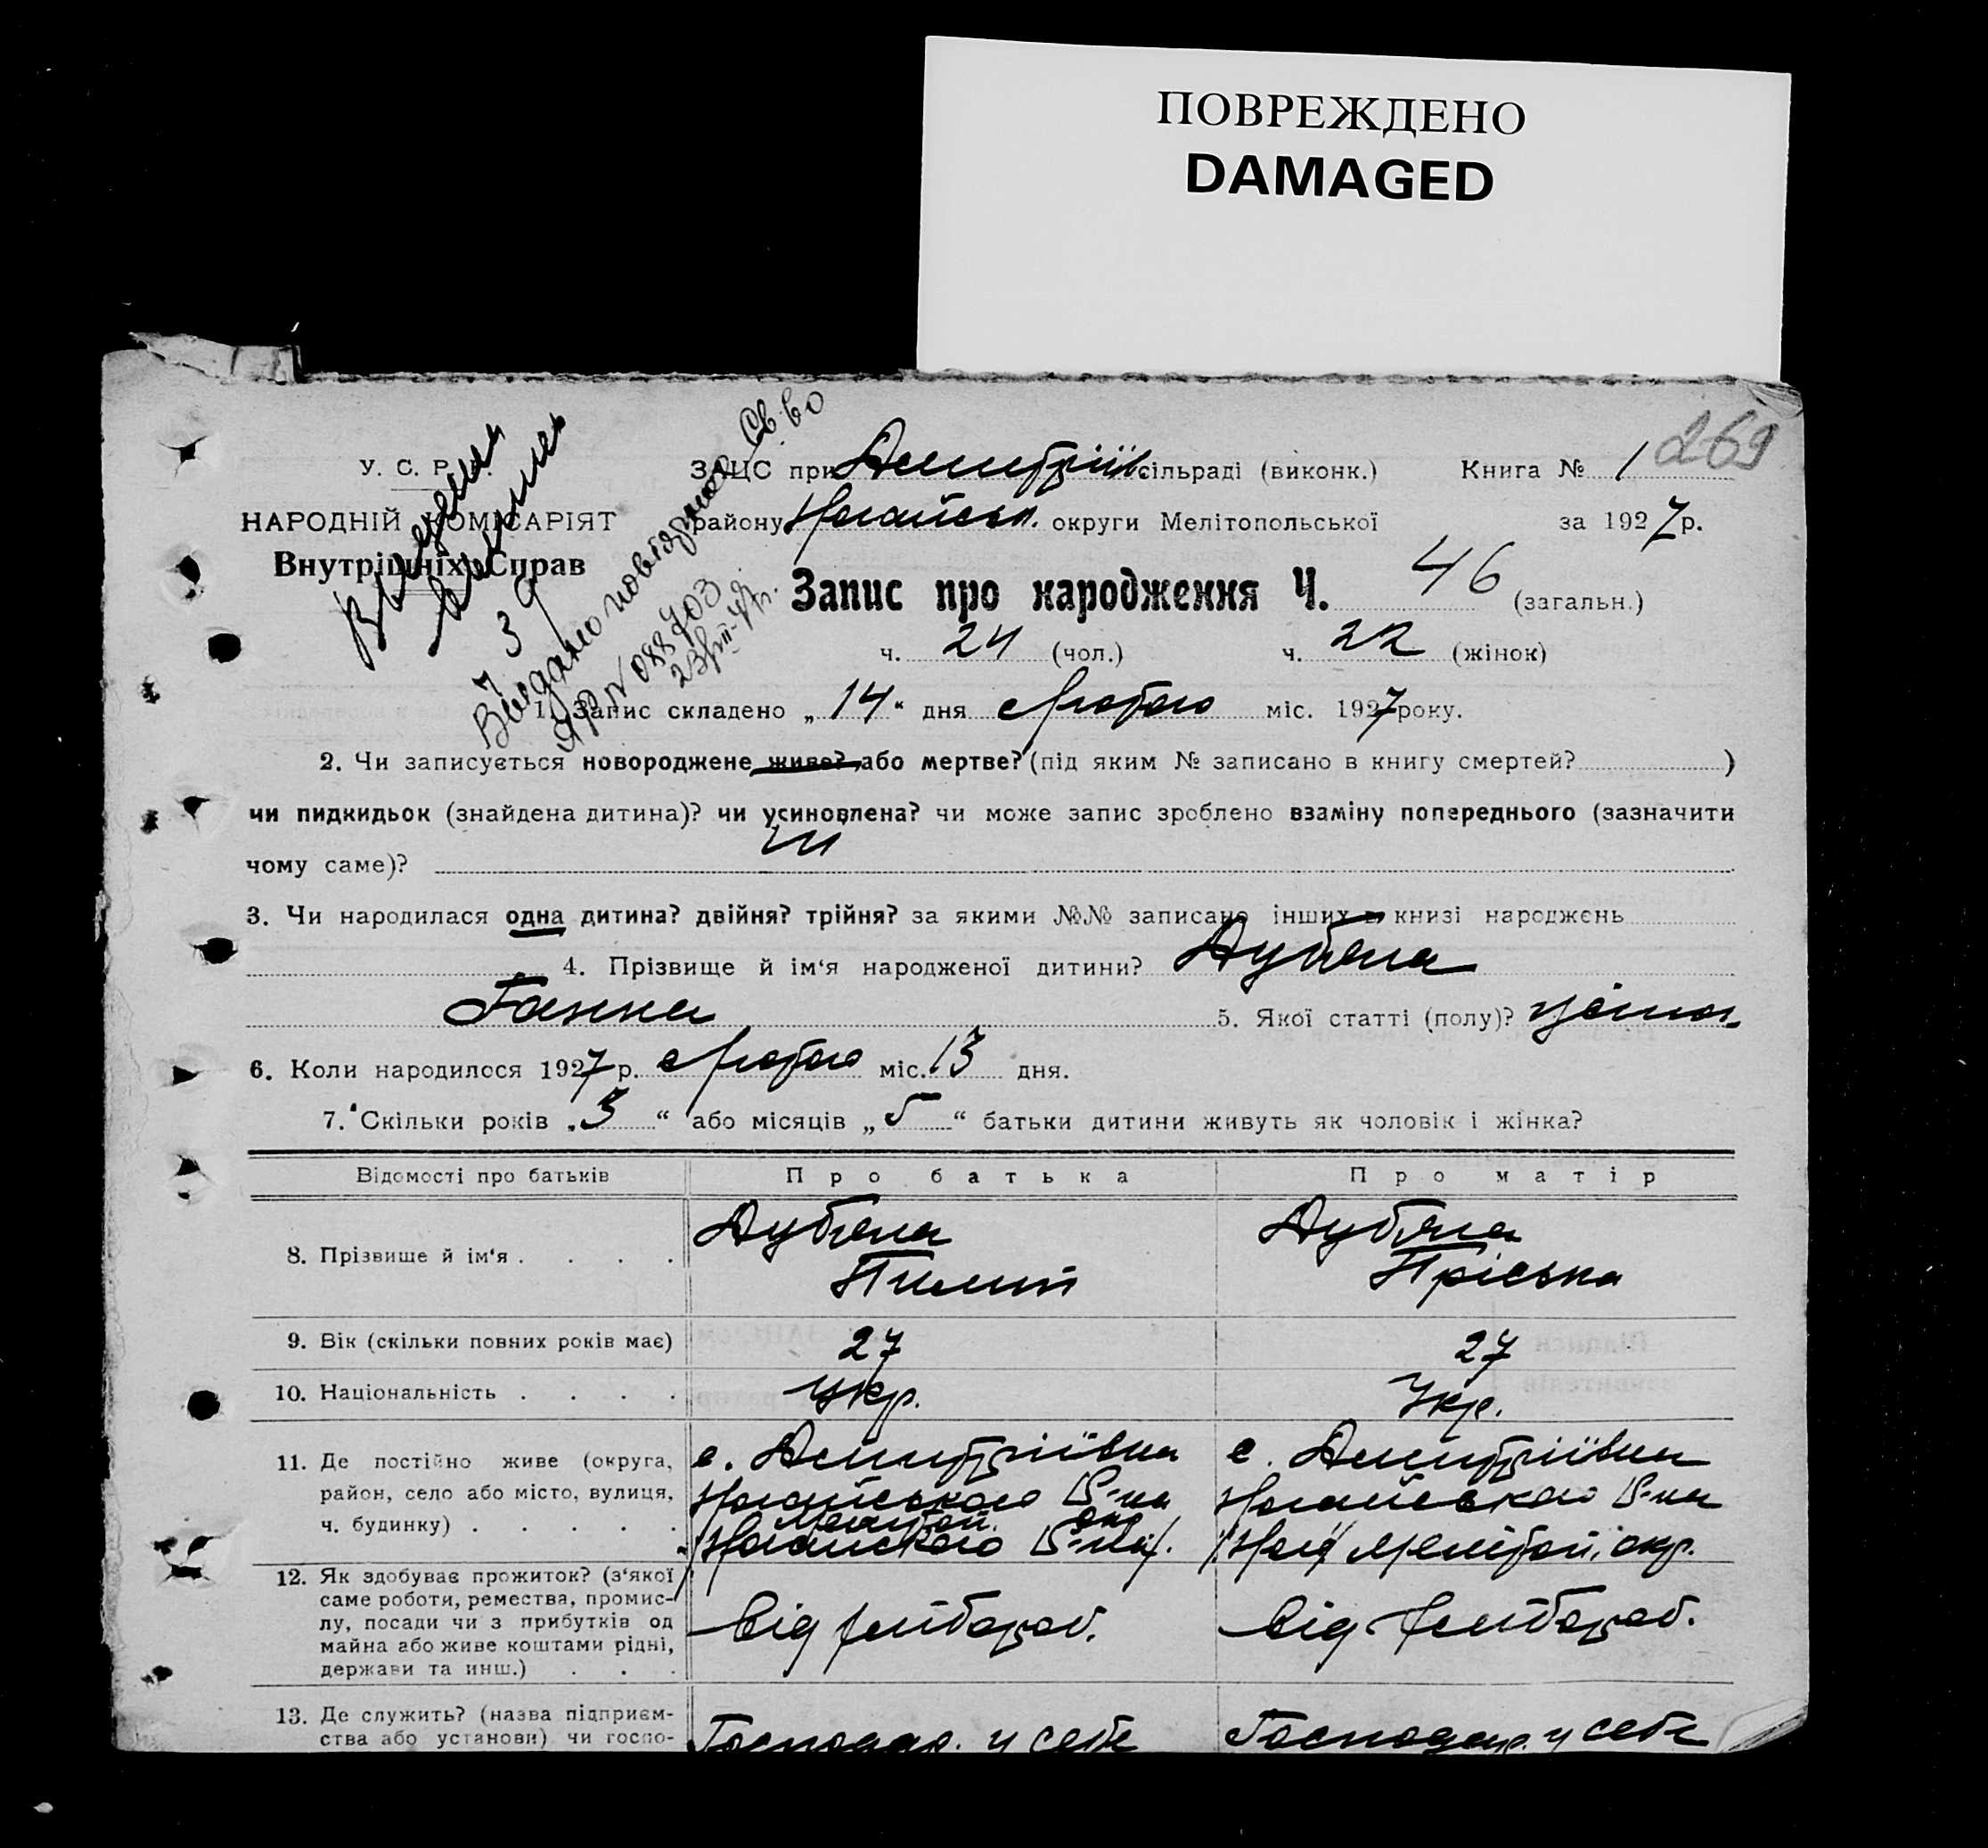 ПОВРЕЖДЕНО
DAMAGED
269
У. С. Р. Р.
НАРОДНІЙ КОМІСАРІЯТ
Внутрішніх Справ
ЗАЦС при Дмитріїв. сільраді (виконк.) Книга № 1
району Ногайськ. округи Мелітопольської за 1927 р.
Видано повторное св-во
ЯР № 088703
Запис про народження Ч. 46 (загальн.)
ч. 24 (чол.) ч. 22 (жінок)
1. Запис складено „14“ дня Лютого міс. 1927 року.
2. Чи записується новороджене живе? або мертве? (під яким № записано в книгу смертей? )
чи пидкидьок (знайдена дитина)? чи усиновлена? чи може запис зроблено взаміну попереднього (зазначити
чому саме)? ні
3. Чи народилася одна дитина? двійня? трійня? за якими №№ записано інших в книзі народжень
4. Прізвище й ім‘я народженої дитини? Дубяга
Ганна 5. Якої статті (полу)? жіноч.
6. Коли народилося 1927 р. Лютого міс. 13 дня.
7. Скільки років „3“ або місяців „5“ батьки дитини живуть як чоловік і жінка?
Відомості про батьків Про батька Про матір
8. Прізвище й ім‘я . . . . Дубяга Пилип Дубяга Пріська
9. Вік (скільки повних років має) 27 27
10. Національність . . . . Укр. Укр.
11. Де постійно живе (округа, с. Дмитріївка с. Дмитріївка
район, село або місто, вулиця, Ногайського Р-на Ногайського Р-на
ч. будинку) . . . . . Мелітоп. окр. Ногайского Р-на Ног Мелітоп. окр.
12. Як здобуває прожиток? (з‘якої
саме роботи, ремества, промис-
лу, посади чи з прибутків од Від хлібороб. Від хлібороб.
майна або живе коштами рідні,
держави та инш.) . . .
13. Де служить? (назва підприєм-
ства або установи) чи госпо- Господар. у себе Господар. у себе